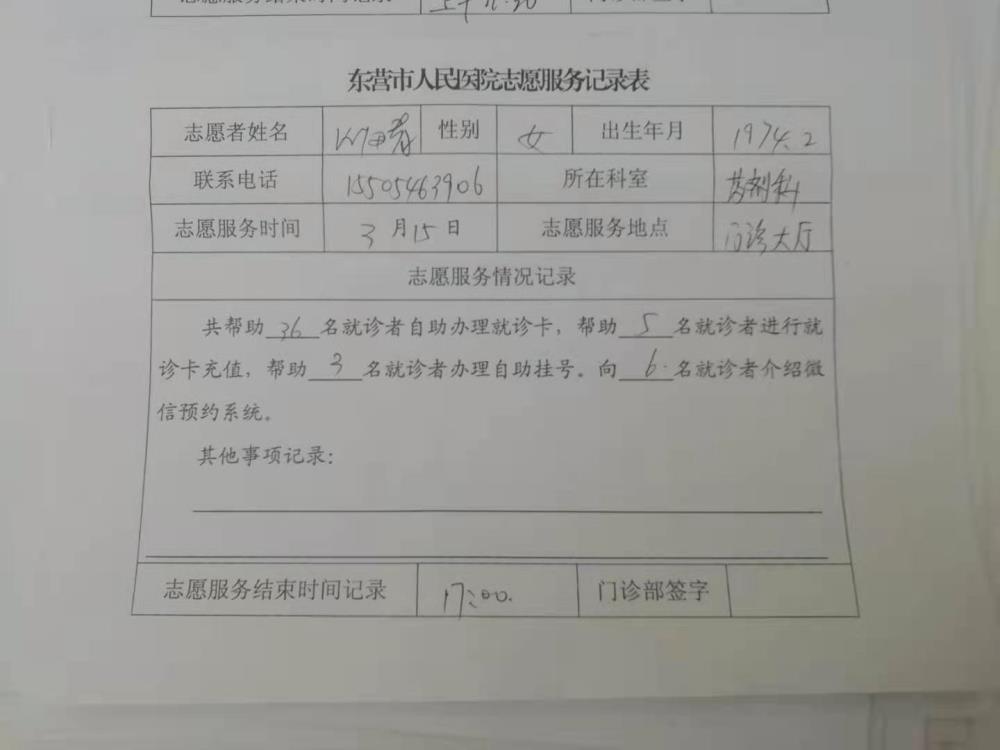 东营市人民医院志愿服务记录表
志愿者姓名 性别 女 出生年月 1974.2
联系电话 15505463906 所在科室 药剂科
志愿服务时间 3月15日 志愿服务地点 门诊大厅
志愿服务情况记录
共帮助36名就诊者自助办理就诊卡，帮助5名就诊者进行就
诊卡充值，帮助3名就诊者办理自助挂号。向6名就诊者介绍微
信预约系统。
其他事项记录：
志愿服务结束时间记录 17:00. 门诊部签字